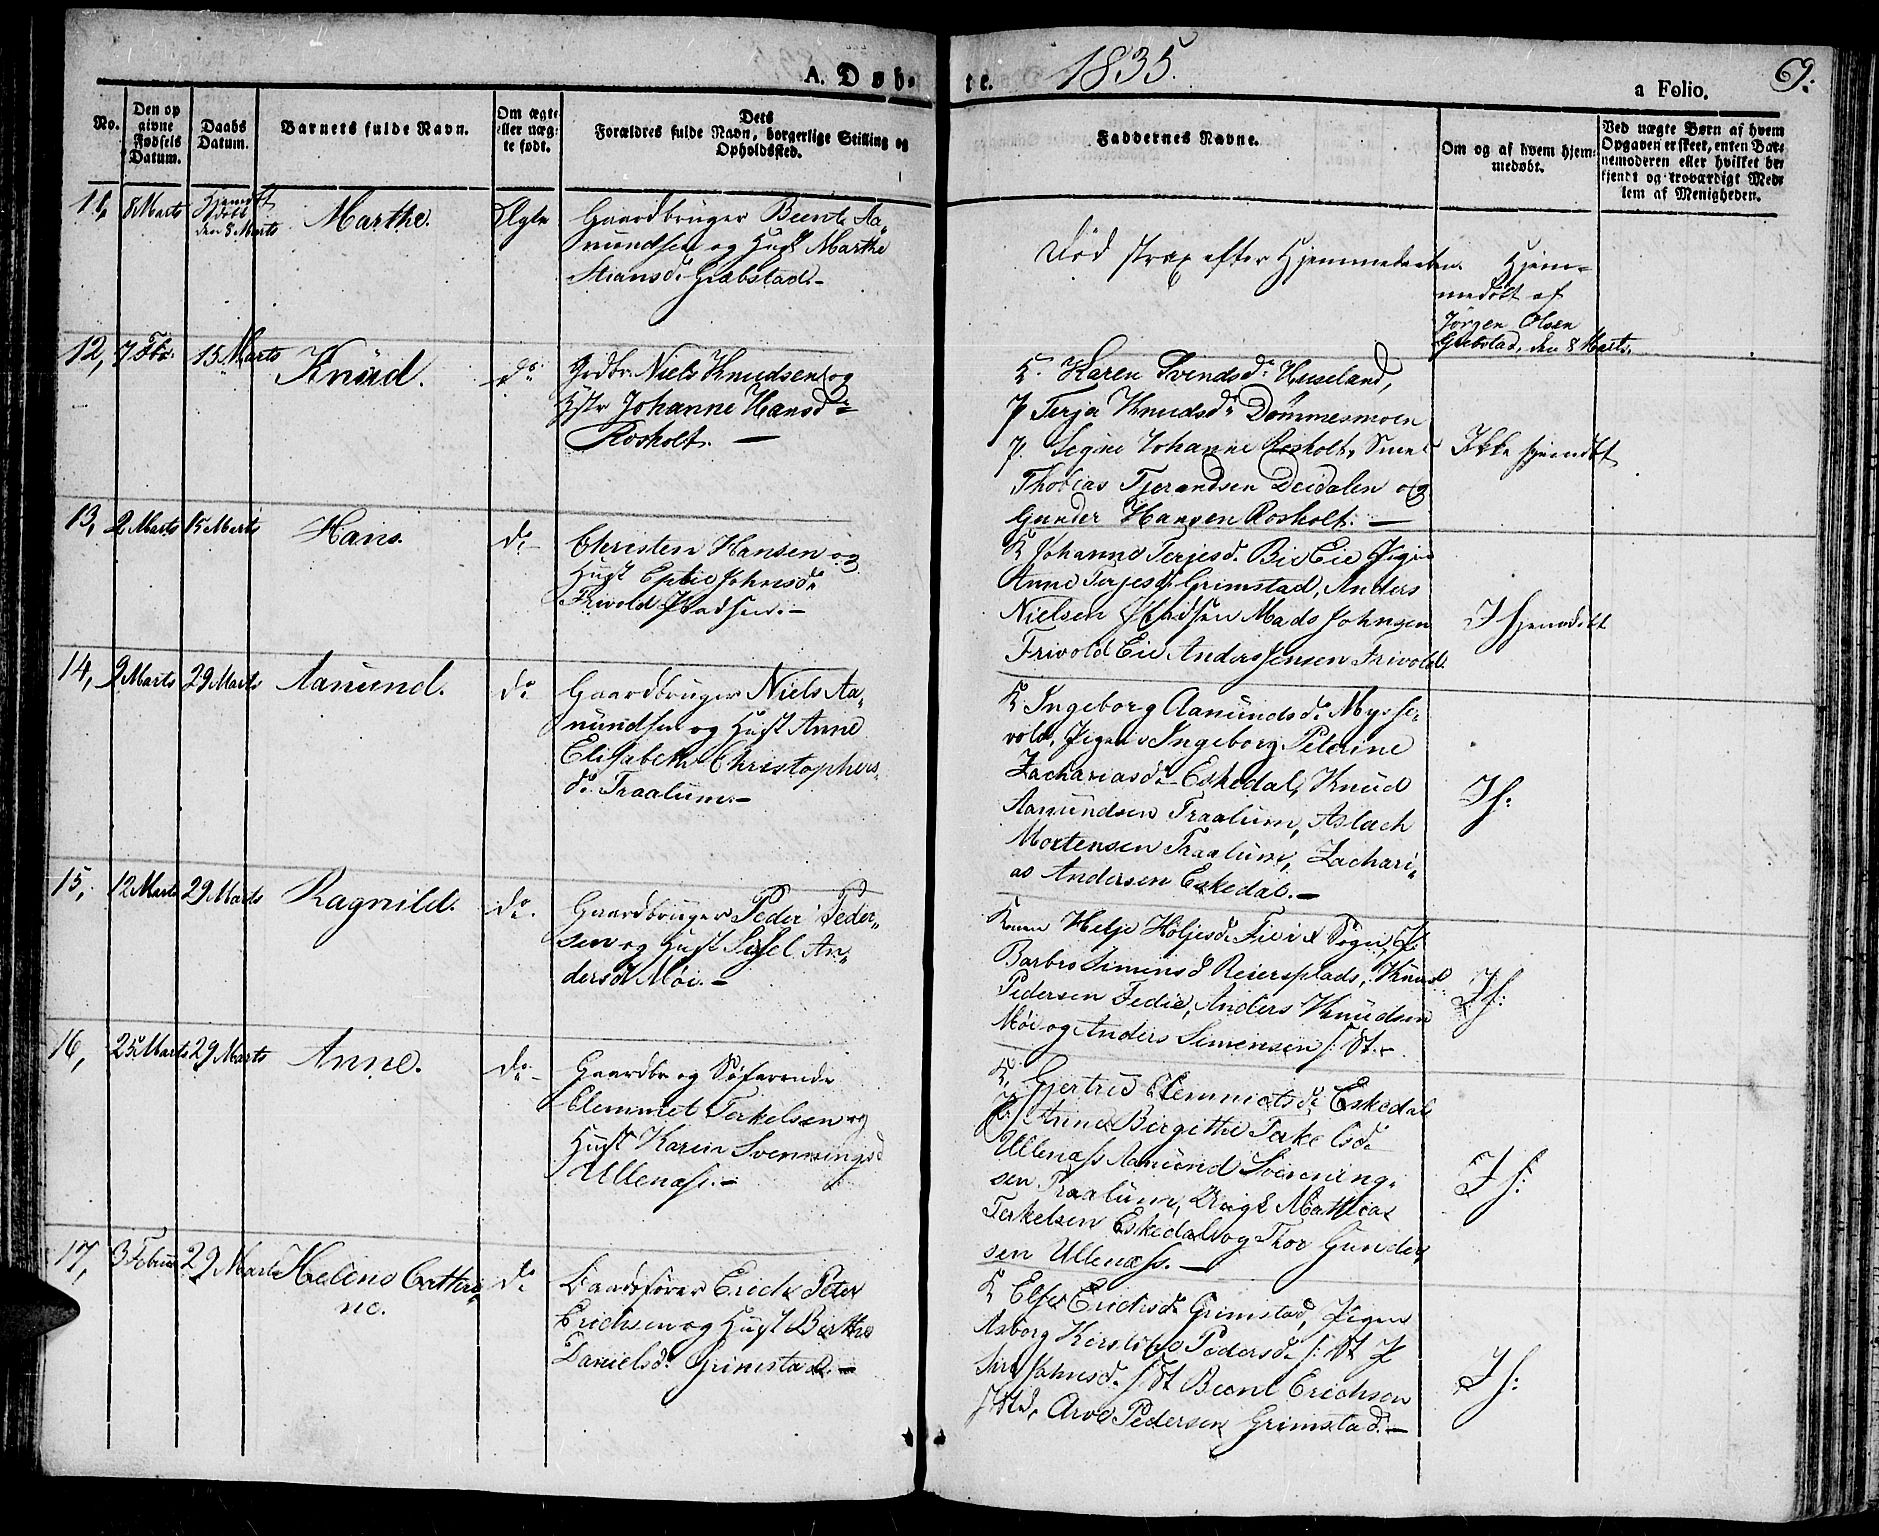 A. Døb-
te.
1835.
a Folio.
69.
No.
Den op
givne
Fødsels
Datum.
Daabs
Datum.
Barnets fulde Navn.
Om ægte
eller uæg-
te født.
Dets
Forældres fulde Navn, borgerlige Stilling og
Opholdssted.
Faddernes Navne.
Om og af hvem hjem-
medøbt.
Ved uægte Børn af hvem
Opgaven er skeet, enten Bar-
nemoderen eller hvilket be-
kjendt og troværdigt Med-
lem af Menigheden.
11, 8 Marts
den 8 Marts
Marthe.
Ægte
Gaardbruger Beent Aa-
nundsen og Hust Marthe
Stiansd. Græbstad.-
Død strax efter Hjemmedaaben.
Hjem-
medøbt af
Jörgen Olsen
Græbstad, den 8 Marts.
12, 7 Febr. 15 Marts
Knüd.
do
Grdbr. Niels Knudsen og
Hstr Johanne Hansd.
Rosholt. —
K. Karen Svendsd. Huseland,
P. Terja Knudsd. Dømmesmoen
P. Segne Johanne Rosholt,
Thobias Tjerandsen Deedalen og
Gunder Hansen Rosholt. —
Ikke hjemdøbt
13, 2 Marts 15 Marts
Hans.
do
Christen Hansen og
Hust Johnsd.
Frivold
K Johanne Terjesd. Bie Eie Pigen
Anne Terjesd. Grimstad, Anders
Nielsen Mads Johnsen
Frivold Eie Anders Jensen Frivold.
I Hjemdøbt
14, 9 Marts 29 Marts
Aanund.
do
Gaardbruger Niels Aa-
nundsen og Hust Anne
Elisabeth Christophers-
d. Traalum.-
K. Ingeborg Aanundsd. Mysse-
vold, Pigen Ingeborg Peterine
Zachariasd. Eskedal, Knud
Aanundsen Traalum, Aslach
Mortensen Traalum, Zachari-
as Andersen Eskedal.-
I h:
15, 12 Marts 29 Marts
Ragnild.
do
Gaardbruger Peder Peder-
sen og Hust Sissel An-
dersd Møi.-
Konen Helje Holjesd. Sogn, P.
Barbro Simensd Reiersplads, Knud
Pedersen Fedie, Anders Knudsen
Møi og Anders Simensen s: St.-
I h:
16, 25 Marts 29 Marts
Anne.
do
Gaardbr og Søfarende
Clemmet Terkelsen og
Hust Karen Svenningsd
Ullenæs.-
K. Gjertrud Clemmetsd. Eskedal
P. Anne Birgithe Terkelsd.
Ullenæs Aanund Svenning-
sen Traalum, Mathias
Terkelsen Eskedal og Thor Gunder-
sen Ullenæs.-
I h:
17, 3 Februar 29 Marts
Helene Cathri-
ne.
do
Baadsfører Erich Peter
Erichsen og Hust Birthe
Danielsd. Grimstad.-
K Else Erichsd. Grimstad, Pigen
Asborg Kirstine Pedersd. s: St P
Johnsd. s St Beent Erichsen
Arve Pedersen Grimstad.-
I h: